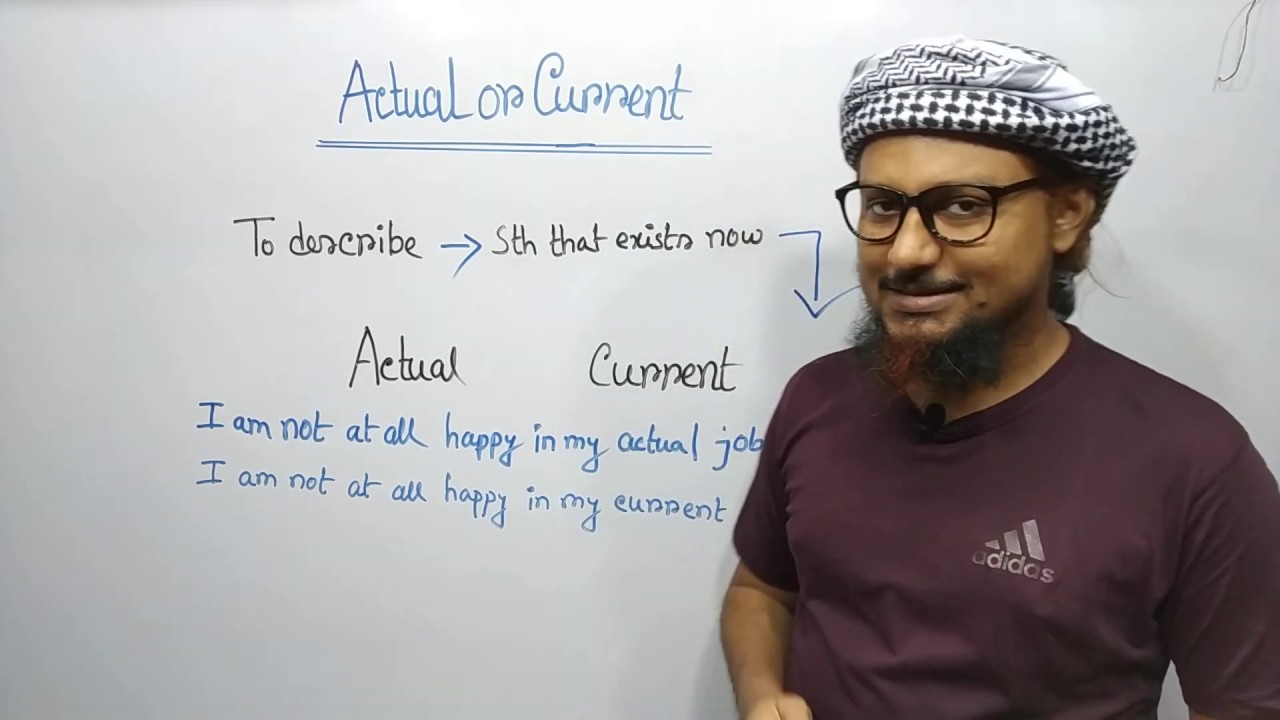 Actual or Current
To describe → Sth that exists now
Actual Current
I am not at all happy in my actual job
I am not at all happy in my current
adidas